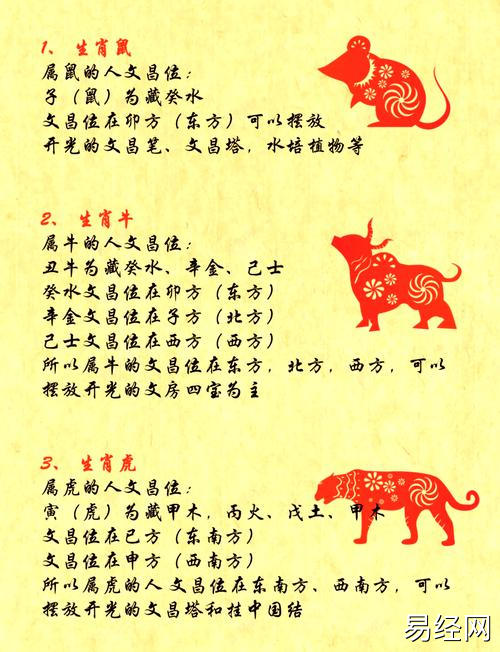 1、 生肖鼠
属鼠的人文昌位：
子（鼠）为藏癸水
文昌位在卯方（东方）可以摆放
开光的文昌笔、文昌塔，水培植物等
2、 生肖牛
属牛的人文昌位：
丑牛为藏癸水、辛金、己士
癸水文昌位在卯方（东方）
辛金文昌位在子方（北方）
己士文昌位在西方（西方）
所以属牛的文昌位在东方，北方，西方，可以
摆放开光的文房四宝为主
3、 生肖虎
属虎的人文昌位：
寅（虎）为藏甲木，丙火、戊土、甲木
文昌位在巳方（东南方）
文昌位在申方（西南方）
所以属虎的人文昌位在东南方、西南方，可以
摆放开光的文昌塔和挂中国结
易经网